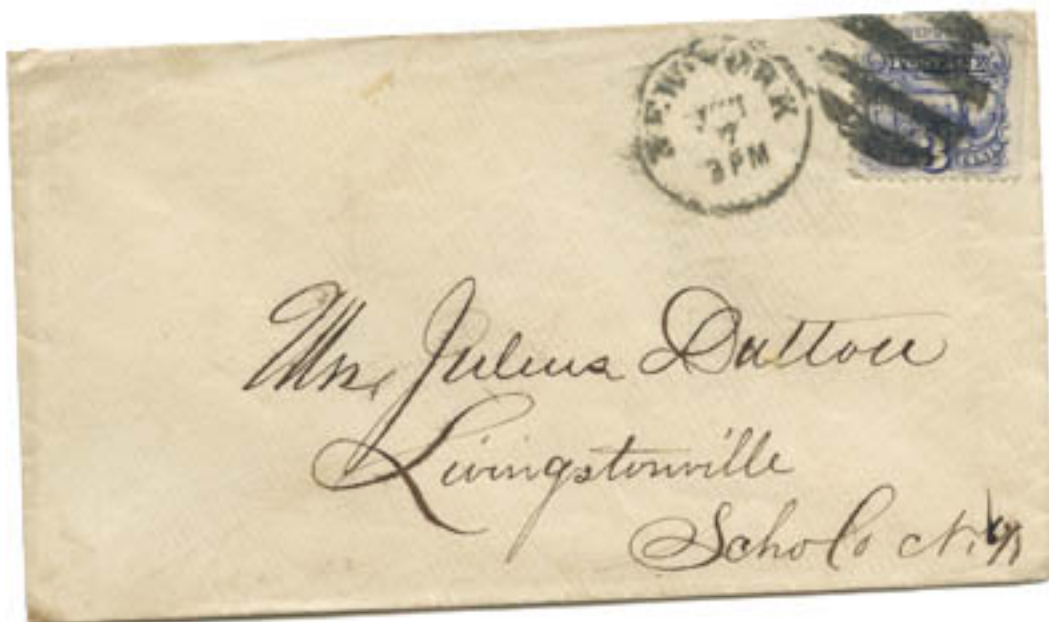 NEW YORK
JUN
7
3 PM
POSTAGE
3
Mrs Julius Dutton
Livingstonville
Scho Co N. Y